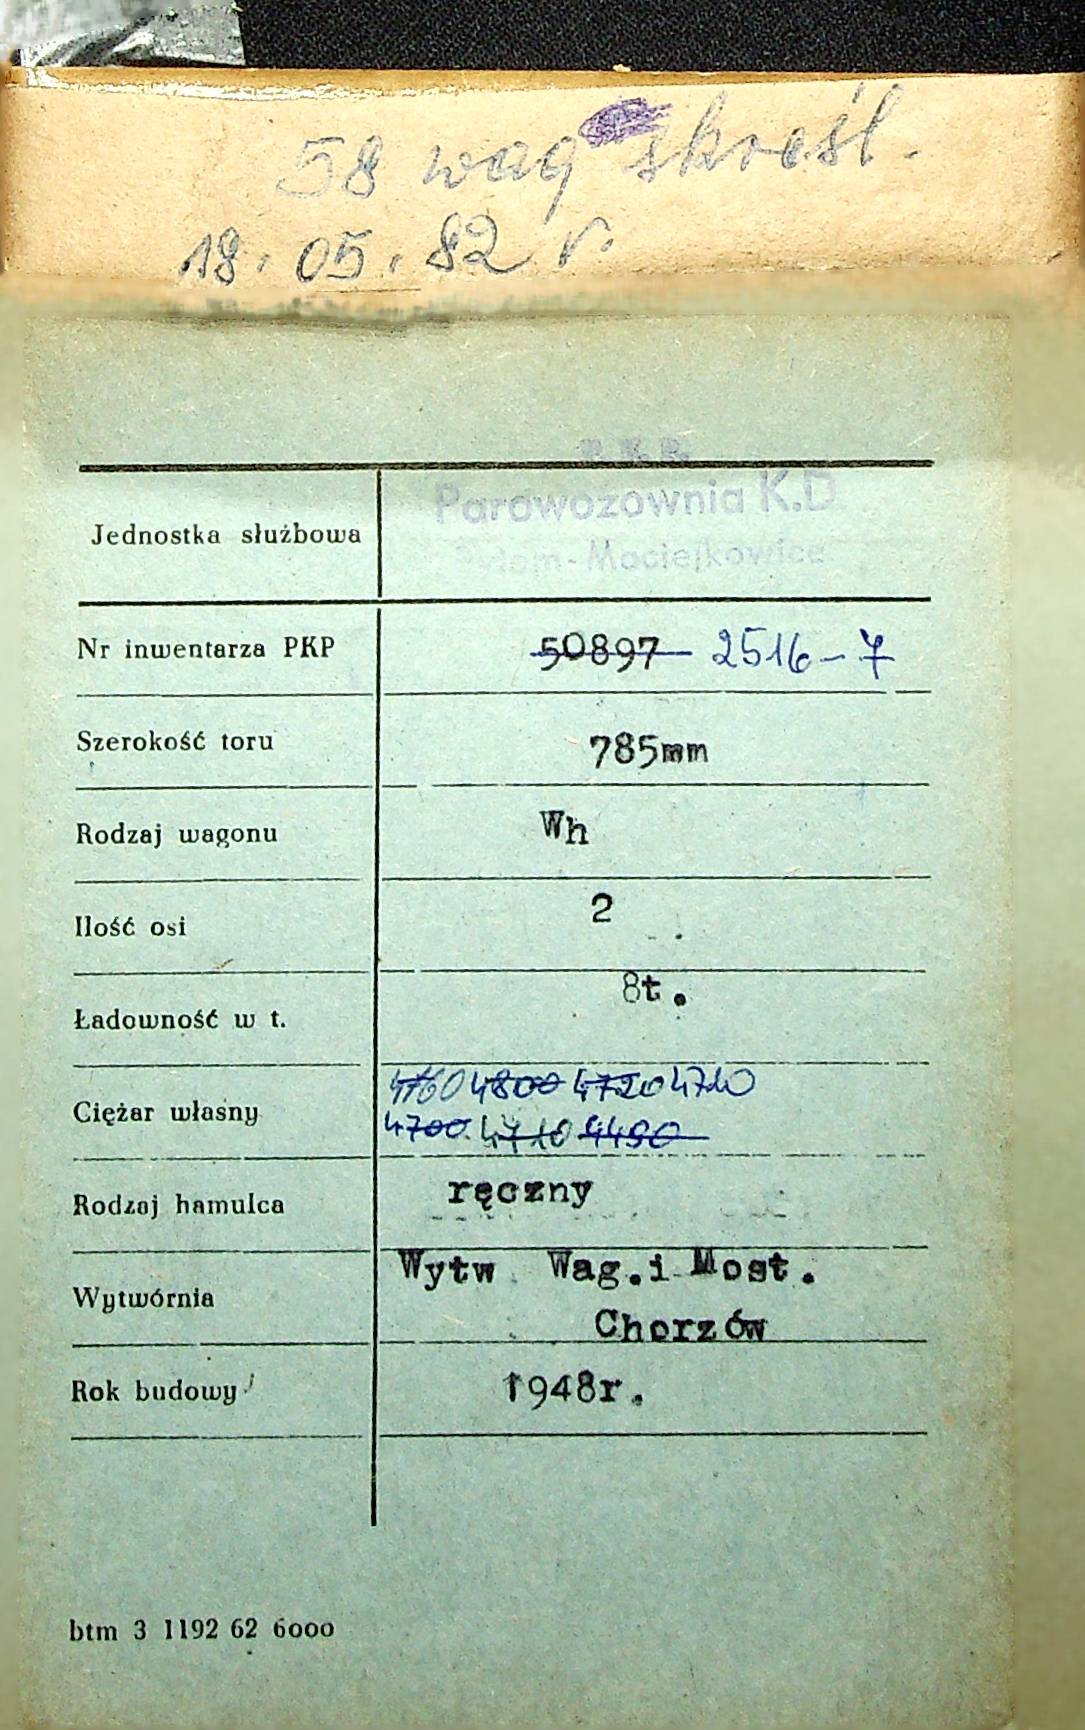 58 wag skreśl.
18.05.82 r.
P.K.P.
Parowozownia K.D.
Bytom-Maciejkowice
Jednostka służbowa
Nr inwentarza PKP 50897 2516-7
Szerokość toru 785mm
Rodzaj wagonu Wh
Ilość osi 2
Ładowność w t. 8t.
4760 4800 4720 4710
Ciężar własny
4700 4710 4490
Rodzaj hamulca ręczny
Wytw Wag.i Most.
Wytwórnia
Chorzów
Rok budowy 1948r.
btm 3 1192 62 6000